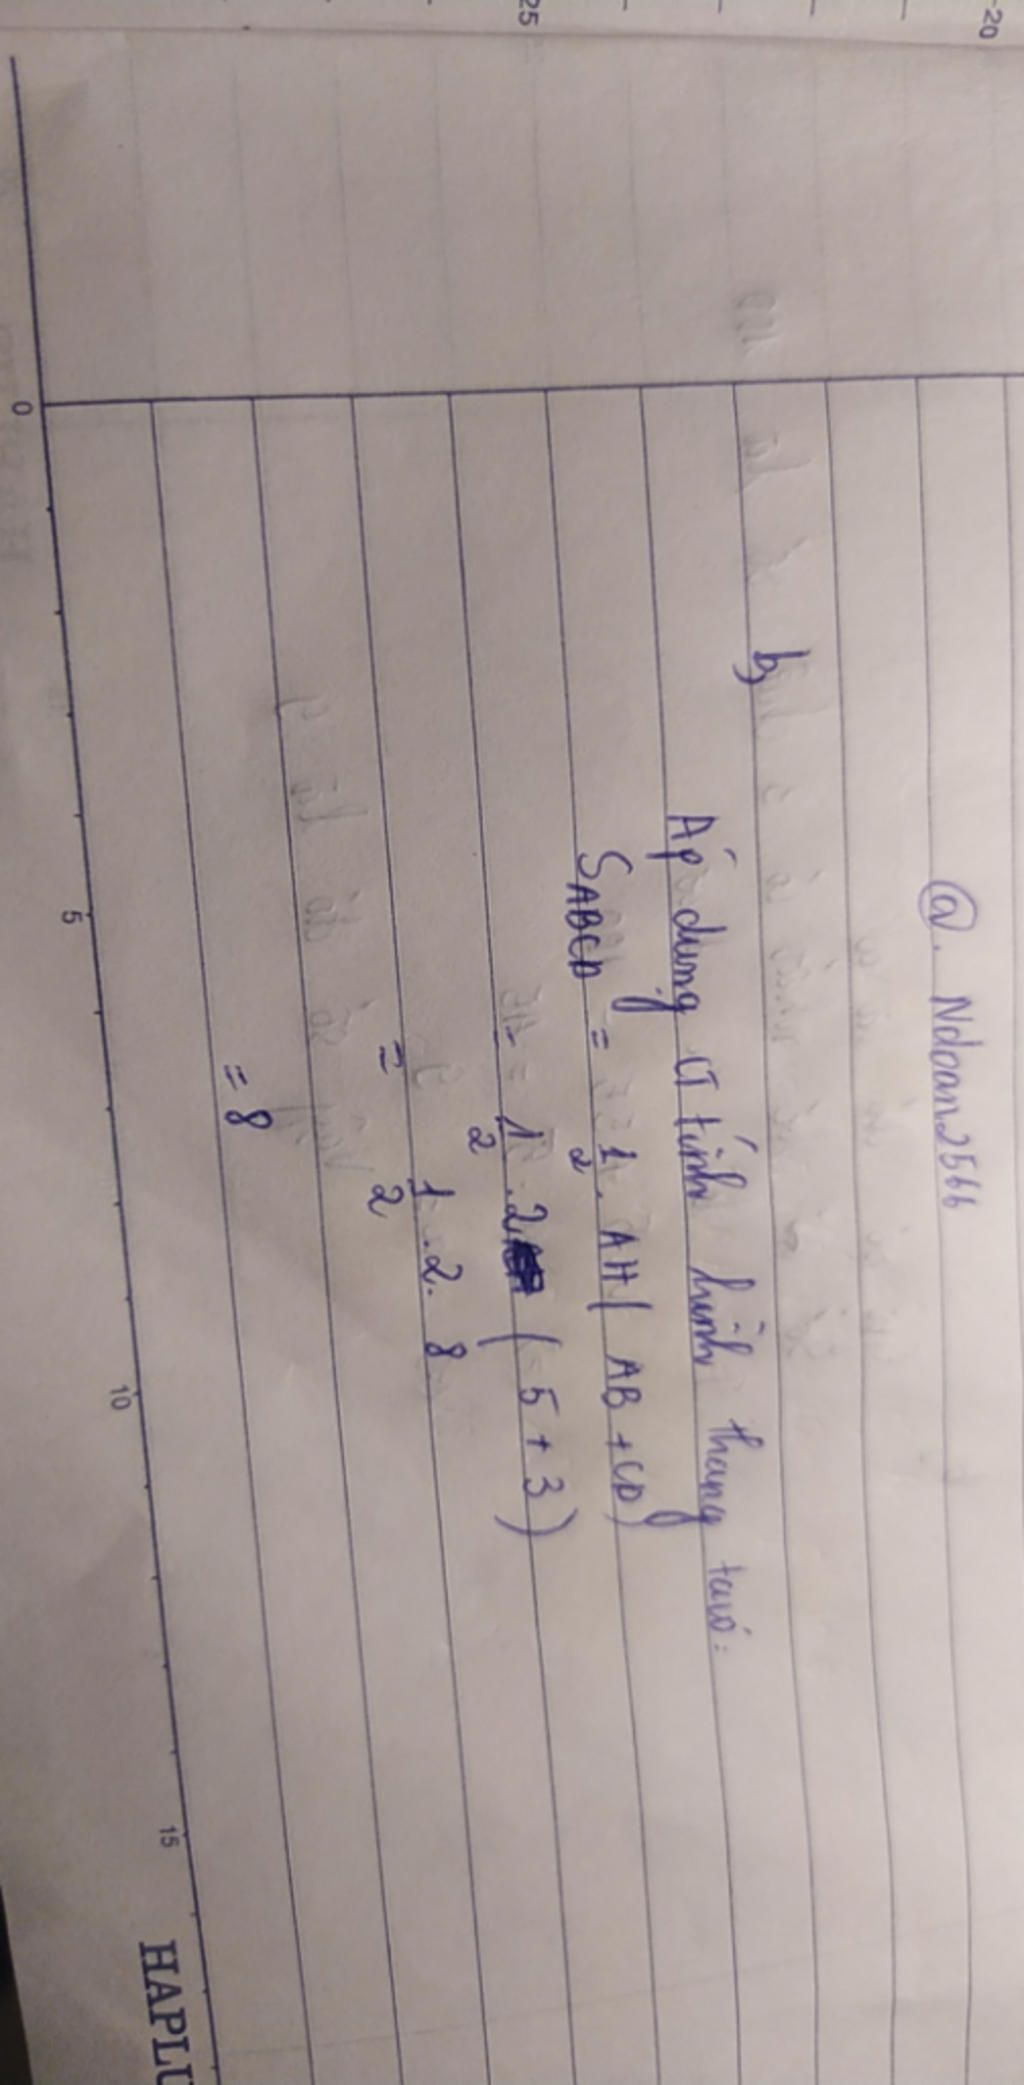 @. Ndoan2566
b)
Áp dụng CT tính hình thang ta có:
S_ABCD = 1/2 . AH ( AB + CD)
= 1/2 . 2 ( 5 + 3 )
= 1/2 . 2 . 8
= 8
0 5 10 15
HAPLU
25 -20